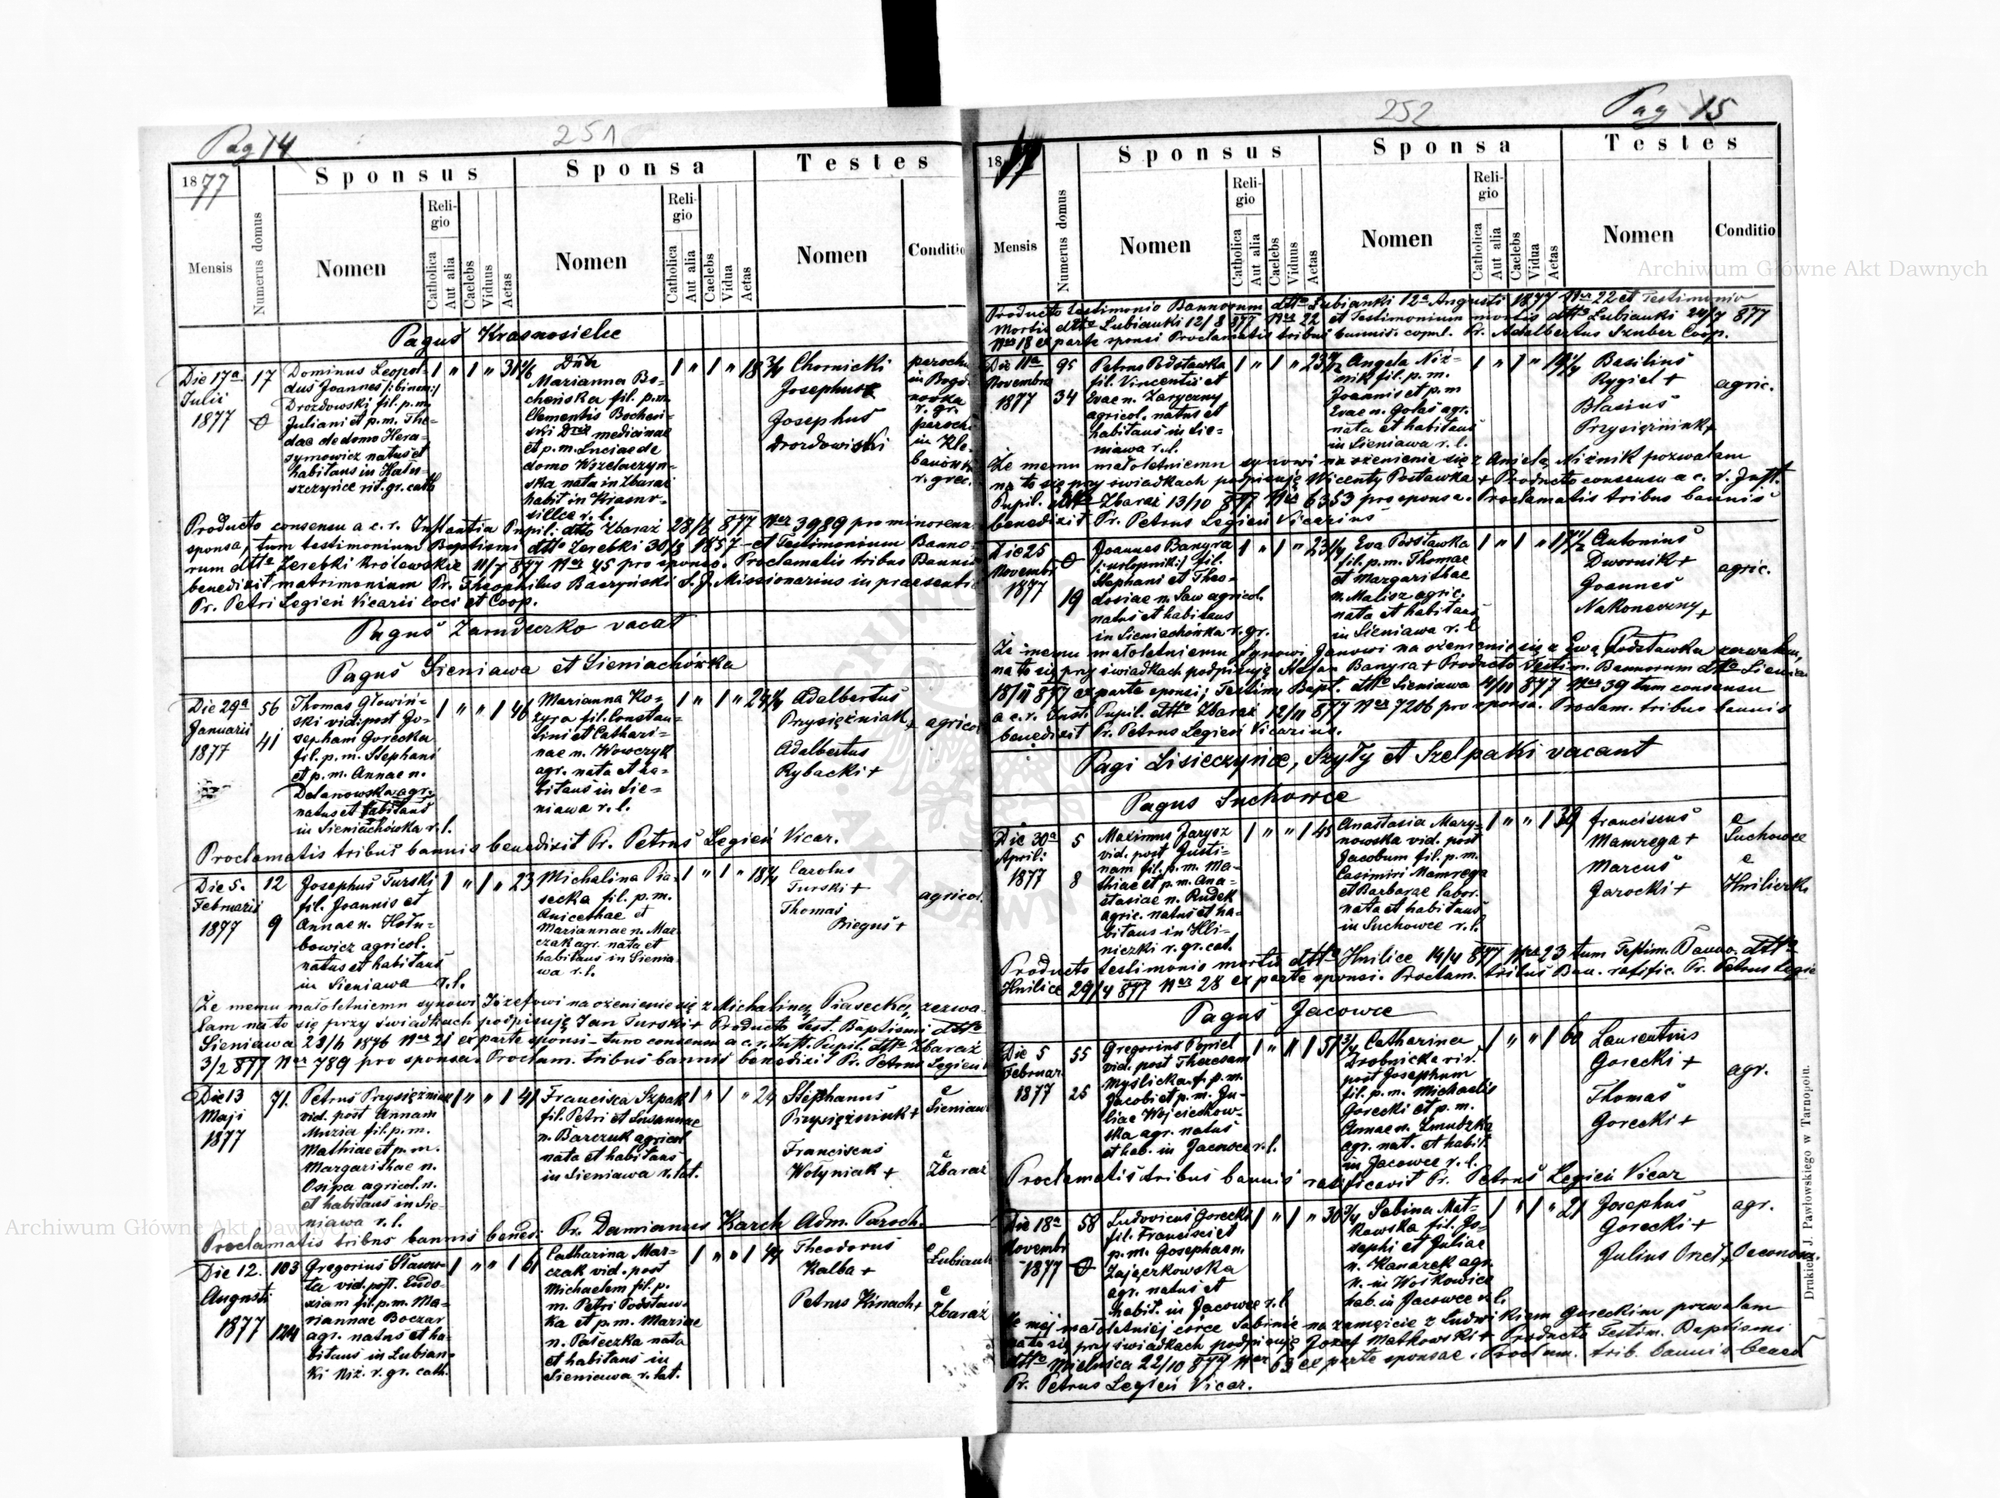 Pag 14
251
1877
Sponsus
Sponsa
Testes
Mensis
Numerus domus
Nomen
Religio
Catholica
Aut alia
Caelebs
Viduus
Aetas
Nomen
Religio
Catholica
Aut alia
Caelebs
Vidua
Aetas
Nomen
Conditio
Pagus Krasnosielce
Die 17a
Julii
1877
17
Dominus Leopol-
dus Joannes /:binom:/
Drozdowski fil. p.m.
Juliani et p.m. The-
clae de domo Hera-
symowicz natus et
habitans in
szczyńce rit. gr. cath
1 " 1 " 31
Marianna Bo-
cheńska fil. p.m.
Clementis Bocheń-
ski medicinae
et p.m. Luciae de
domo Wszelaczyń-
ska nata in Zbaraż
habit in Krasno-
sielce r. l.
1 " 1 " 18 3/4
Chornicki
Josephus
Josephus
Drozdowski
paroch
in Bogda-
nówka
r. gr.
paroch
in Kle-
banówka
r. grec.
Producto consensu a c. r. Instantia Pupil. dtto Zbaraż 28/6 877 Ner 3989 pro minorenni
sponsa, tum testimonium Baptismi dtto Zerebki 30/8 1857 et Testimonium Banno-
rum dtto Zerebki Królewskie 11/7 877 Ner 45 pro sponso. Proclamatis tribus Bannis
benedixit matrimonium Pr. Theophilus Baczyński S. J. Missionarius in praesentia
Pr. Petri Legień Vicarii loci et Coop.
Pagus Zarudeczko vacat
Pagus Sieniawa et Sieniachówka
Die 29a
Januarii
1877
56
41
Thomas Głowiń-
ski vid. post Jo-
sepham Gorecka
fil. p.m. Stephani
et p.m. Annae n.
Delanowska agr.
natus et habitans
in Sieniachówka r. l.
1 " " 1 46
Marianna Ko-
zyra fil. Constan-
tini et Cathari-
nae n. Wowczyk
agr. nata et ha-
bitans in Sie-
niawa r. l.
1 " 1 " 24
Adalbertus
Przysiężniak +
Adalbertus
Rybacki +
agricol
Proclamatis tribus bannis benedixit Pr. Petrus Legień Vicar.
Die 5.
Februarii
1877
12
9
Josephus Turski
fil. Joannis et
Annae n. Hołu-
bowicz agricol.
natus et habitans
in Sieniawa r. l.
1 " 1 " 23
Michalina Pia-
secka fil. p.m.
Anicethae et
Mariannae n. Mar-
czak agr. nata et
habitans in Sienia-
wa r. l.
1 " 1 " 18
Carolus
Turski +
Thomas
Biegus +
agricol.
Że memu małoletniemu synowi Józefowi na ożenienie się z Michaliną Piasecką, zezwa-
lam na to się przy świadkach podpisuję Jan Turski + Producto Test. Baptismi dtto
Sieniawa 28/6 1876 Ner 21 ex parte sponsi - tum consensu a c. r. Inst. Pupil. dtto Zbaraż
3/2 877 Ner 789 pro sponsa. Proclam. tribus bannis benedixit Pr. Petrus Legień
Die 13
Maji
1877
71.
Petrus Przysiężniak
vid. post Annam
Muzia fil. p.m.
Mathiae et p.m.
Margarithae n.
Osipa agricol. n.
et habitans in Sie-
niawa r. l.
1 " " 1 41
Francisca Szpak
fil. Petri et Susannae
n. Barczuk agricol
nata et habitans
in Sieniawa r. lat.
1 " 1 " 24
Stephanus
Przysiężniak +
Franciscus
Wołyniak +
e
Sieniawa
e
Zbaraż
Proclamatis tribus bannis bened. Pr. Damianus Karch Adm. Paroch.
Die 12.
Augusti
1877
103
124
Gregorius Sławu-
ta vid. post. Eudo-
xiam fil. p.m. Ma-
riannae Boczar
agr. natus et ha-
bitans in Lubian-
ki Niż. r. gr. cath.
1 " " 1 61
Catharina Mar-
czak vid. post
Michaelem fil. p.
m. Petri Podstaw-
ka et p.m. Mariae
n. Pałeczka nata
et habitans in
Sieniawa r. lat.
1 " " 1 44
Theodorus
Kalba +
Petrus Kinach +
e
Lubianki
e
Zbaraż
Pag 15
252
1877
Sponsus
Sponsa
Testes
Mensis
Numerus domus
Nomen
Religio
Catholica
Aut alia
Caelebs
Viduus
Aetas
Nomen
Religio
Catholica
Aut alia
Caelebs
Vidua
Aetas
Nomen
Conditio
Producto testimonio Bannorum dtto Lubianki 12a Augusti 1877 Ner 22 et Testimonio
Mortis dtto Lubianki 12/8 877 Ner 22 et Testimonium mortis dtto Lubianki 24/7 877
Ner 18 ex parte sponsi Proclamatis tribus bannis copul. Pr. Adalbertus Szuber Coop.
Die 11a
Novembris
1877
95
34
Petrus Podstawka
fil. Vincentii et
Evae n. Zaryczny
agricol. natus et
habitans in Sie-
niawa r. l.
1 " 1 " 23
Angela Niż-
nik fil. p.m.
Joannis et p.m
Evae n. Gołaś agr.
nata et habitans
in Sieniawa r. l.
1 " 1 " 19
Basilius
Rygiel +
Blasius
Przysiężniuk +
agric.
Że memu małoletniemu synowi na ożenienie się z Anielą Niżnik pozwalam
na to się przy świadkach podpisuję Wicenty Postawka + Producto consensu a c. r. Inst.
Pupil. dtto Zbaraż 13/10 877 Ner 6353 pro sponsa. Proclamatis tribus bannis
benedixit Pr. Petrus Legień Vicarius
Die 25
Novembr
1877
19
Joannes Banyra
/:urlopnik:/ fil.
Stephani et Theo-
dosiae n. Saw agricol.
natus et habitans
in Sieniachówka r. gr.
1 " 1 " 23
Eva Podstawka
fil. p.m. Thomae
et Margarithae
n. Malisz agric.
nata et habitans
in Sieniawa r. l
1 " 1 " 17 1/2
Antonius
Dwornik +
Joannes
Nakoneczny +
agric.
Że memu małoletniemu synowi Janowi na ożenienie się z Ewą Podstawką zezwalam,
na to się przy świadkach podpisuję Stefan Banyra + Producto Testim. Bannorum dtto Sieniawa
18/11 877 ex parte sponsi; Testim. Bapt. dtto Sieniawa 4/11 877 Ner 39 tum consensu
a c. r. Inst. Pupil. dtto Zbaraż 12/11 877 Ner 7206 pro sponsa. Proclam. tribus bannis
benedixit Pr. Petrus Legień Vicarius.
Pagi Lisieczyńce, Szyły et Szelpaki vacant
Pagus Suchowce
Die 30a
April:
1877
5
8
Maximus Jarysz
vid. post Justi-
nam fil. p.m. Ma-
thiae et p.m. Ana-
stasiae n. Rudek
agric. natus et ha-
bitans in Hli-
niczki r. gr. cat.
1 " " 1 45
Anastasia Mary-
nowska vid. post
Jacobum fil. p.m.
Casimiri Mamrega
et Barbarae labor.
nata et habitans
in Suchowce r. l.
1 " " 1 39
Franciscus
Mamrega +
Marcus
Jarocki +
e
Suchowce
e
Hniliczki
Producto testimonio mortis dtto Hnilice 14/4 877 Ner 23 tum Testim. Banno. dtto
Hnilice 29/4 877 Ner 28 ex parte sponsi. Proclam. tribus Ban. ratific. Pr. Petrus Legień
Pagus Jacowce
Die 5
Februar.
1877
55
25
Gregorius Popiel
vid. post Theresam
Myślicka f. p.m.
Jacobi et p.m. Ju-
liae Wojciechow-
ska agr. natus
et hab. in Jacowce r. l.
1 " " 1 51 3/4
Catharina
Drobnicka vid.
post Josephum
fil. p.m. Michaelis
Gorecki et p.m.
Annae n. Żmudzka
agr. nat. et habit.
in Jacowce r. l.
1 " " 1 60
Laurentius
Gorecki +
Thomas
Gorecki +
agr.
Proclamatis tribus bannis ratificavit Pr. Petrus Legień Vicar
Die 18a
Novembr
1877
58
Ludovicus Gorecki
fil. Francisci et
p.m. Josephae n.
Zajączkowska
agr. natus et
habit. in Jacowce r. l
1 " 1 " 30 3/4
Sabina Mat-
kowska fil. Jo-
sephi et Juliae
n. Kanarek agr.
n. in Woskowice
hab. in Jacowce r. l.
1 " 1 " 21
Josephus
Gorecki +
Julius Orzeł +
agr.
Oeconom.
Że mej małoletniej córce Sabinie na zamęście z Ludwikiem Goreckim pozwalam
na to się przy świadkach podpisuję Józef Matkowski + Producto Testim. Baptismi
dtto Mielnica 22/10 877 Ner 63 ex parte sponsae. Proclam. trib. bannis bened
Pr. Petrus Legień Vicar.
Drukiem J. Pawłowskiego w Tarnopolu.
Archiwum Główne Akt Dawnych
Archiwum Główne Akt Dawnych